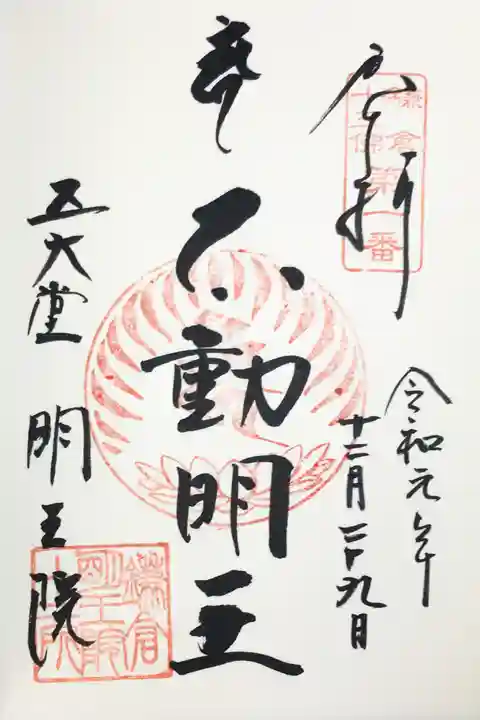 奉拝
鎌倉
十三佛
第一番
令和元年
十二月二十九日
不動明王
五大堂 明王院